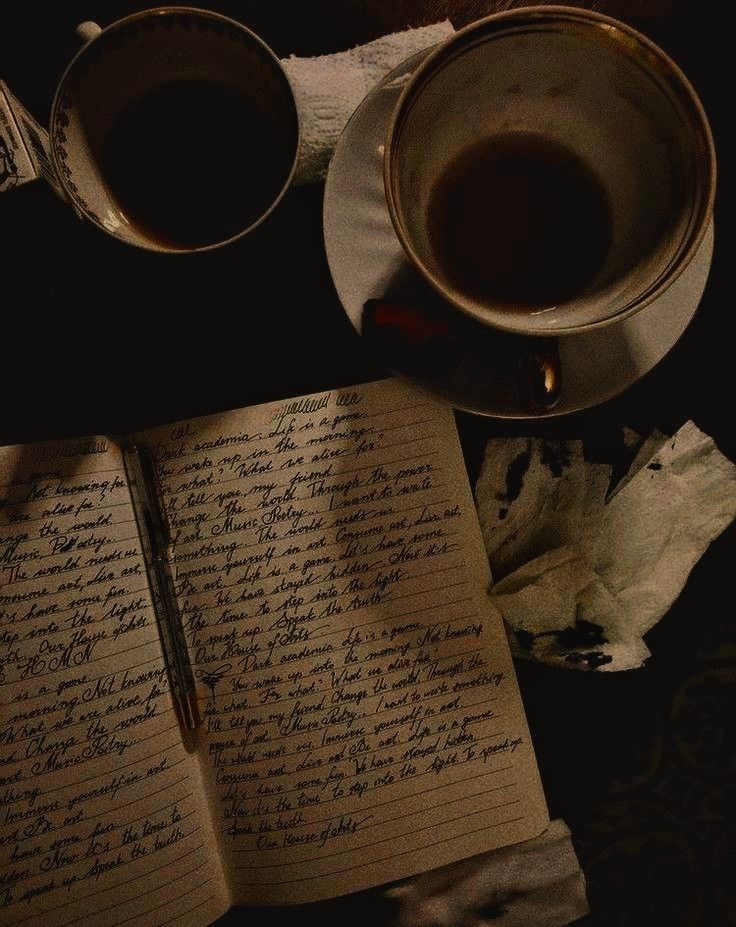 a game
Not knowing for
are alive for?
nge the world.
Music, Poetry.
The world needs us
onsume art, Live art,
t's have some fun.
tep into the light.
uth. Our House of Arts
H M N
is a game
morning. Not knowing
What we are alive for
nd. Change the world
art Music Poetry...
thing
Immerse yourself in art
art Be art.
have some fun.
dden. Now it's the time to
To speak up. Speak the truth
Dark academia. Life is a game.
You wake up in the morning.
for what? What we alive for?
I'll tell you, my friend.
Change the world. Through the power
of art. Music Poetry... I want to write
something. The world needs us.
Immerse yourself in art Consume art, Live art,
Be art. Life is a game. Let's have some
fun. We have stayed hidden. Now it's
the time. to step into the light
To speak up. Speak the truth
Our House of Arts
Dark academia Life is a game
You wake up into the morning. Not knowing
for what. For what? What we alive for?
I'll tell you, my friend. Change the world. Through the
power of art. Music Poetry... I want to write something
The world needs us. Immerse yourself in art
Consume art, Live art Be art. Life is a game
Let's have some fun. We have stayed hidden.
Now it's the time to step into the light. To speak up.
Speak the truth.
Our House of Arts